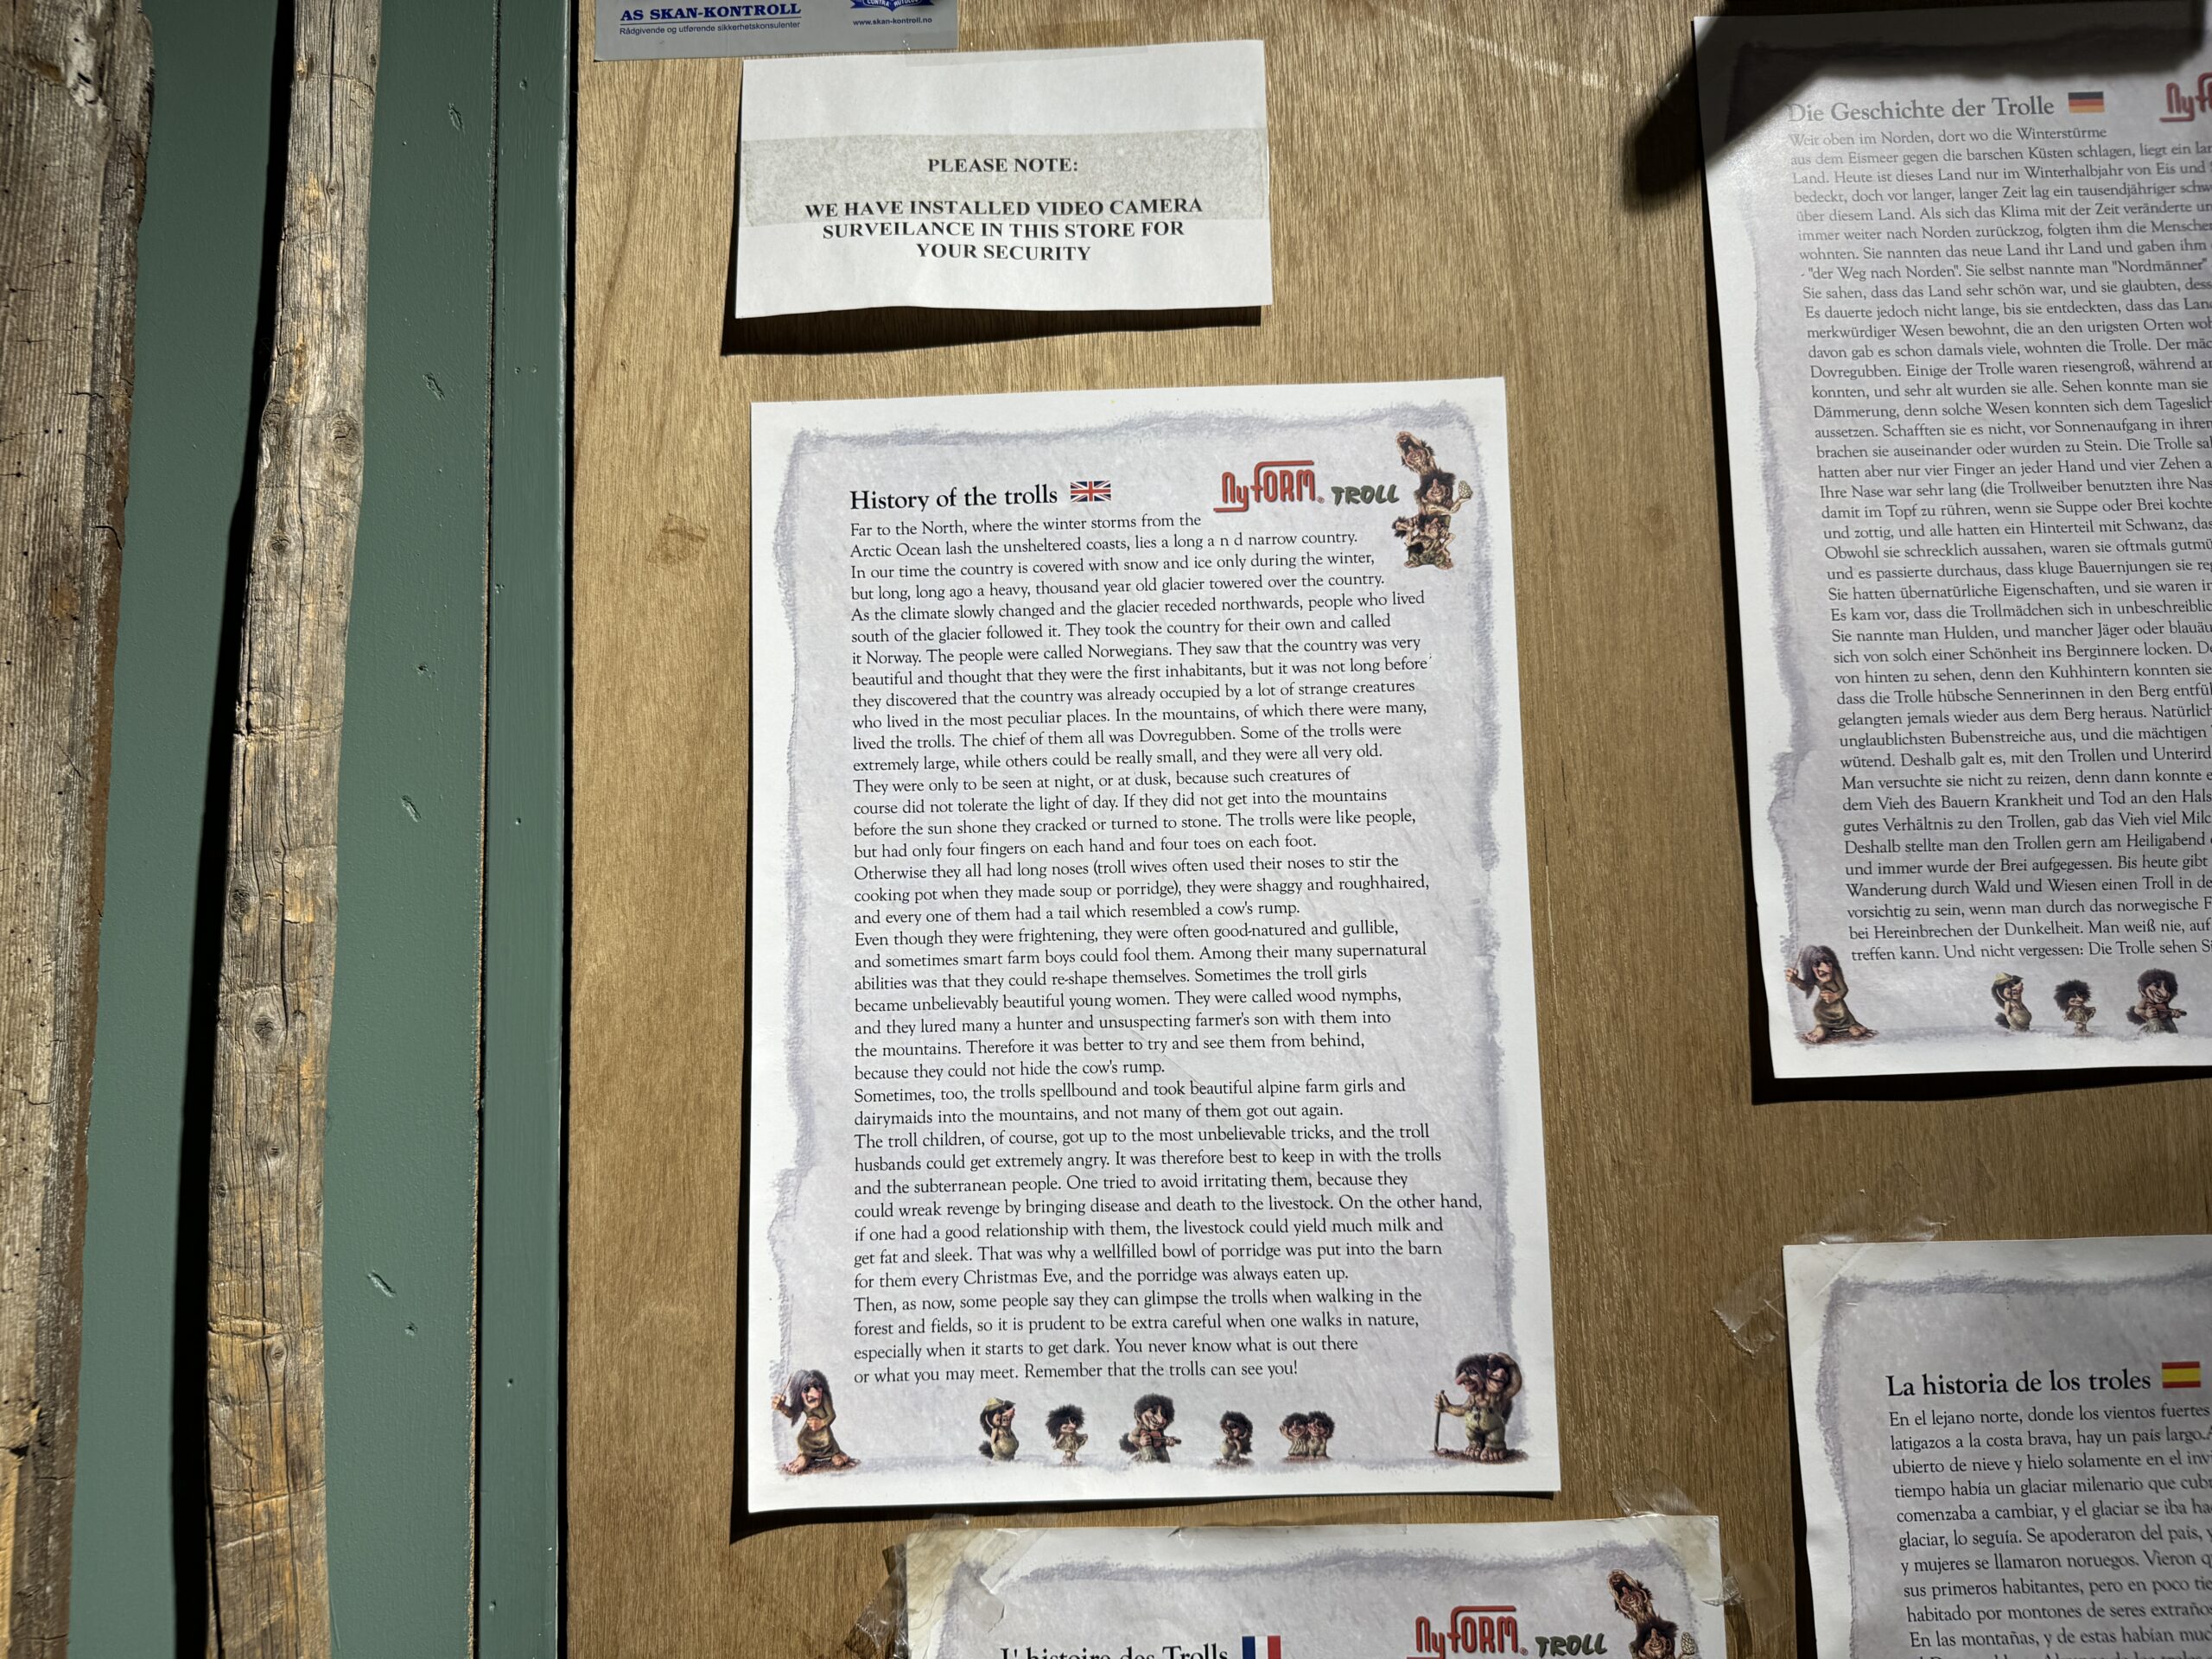 AS SKAN-KONTROLL
Rådgivende og utførende sikkerhetskonsulenter
www.skan-kontroll.no
PLEASE NOTE:
WE HAVE INSTALLED VIDEO CAMERA
SURVEILANCE IN THIS STORE FOR
YOUR SECURITY
History of the trolls
NyFORM® TROLL
Far to the North, where the winter storms from the
Arctic Ocean lash the unsheltered coasts, lies a long a n d narrow country.
In our time the country is covered with snow and ice only during the winter,
but long, long ago a heavy, thousand year old glacier towered over the country.
As the climate slowly changed and the glacier receded northwards, people who lived
south of the glacier followed it. They took the country for their own and called
it Norway. The people were called Norwegians. They saw that the country was very
beautiful and thought that they were the first inhabitants, but it was not long before
they discovered that the country was already occupied by a lot of strange creatures
who lived in the most peculiar places. In the mountains, of which there were many,
lived the trolls. The chief of them all was Dovregubben. Some of the trolls were
extremely large, while others could be really small, and they were all very old.
They were only to be seen at night, or at dusk, because such creatures of
course did not tolerate the light of day. If they did not get into the mountains
before the sun shone they cracked or turned to stone. The trolls were like people,
but had only four fingers on each hand and four toes on each foot.
Otherwise they all had long noses (troll wives often used their noses to stir the
cooking pot when they made soup or porridge), they were shaggy and roughhaired,
and every one of them had a tail which resembled a cow's rump.
Even though they were frightening, they were often good-natured and gullible,
and sometimes smart farm boys could fool them. Among their many supernatural
abilities was that they could re-shape themselves. Sometimes the troll girls
became unbelievably beautiful young women. They were called wood nymphs,
and they lured many a hunter and unsuspecting farmer's son with them into
the mountains. Therefore it was better to try and see them from behind,
because they could not hide the cow's rump.
Sometimes, too, the trolls spellbound and took beautiful alpine farm girls and
dairymaids into the mountains, and not many of them got out again.
The troll children, of course, got up to the most unbelievable tricks, and the troll
husbands could get extremely angry. It was therefore best to keep in with the trolls
and the subterranean people. One tried to avoid irritating them, because they
could wreak revenge by bringing disease and death to the livestock. On the other hand,
if one had a good relationship with them, the livestock could yield much milk and
get fat and sleek. That was why a wellfilled bowl of porridge was put into the barn
for them every Christmas Eve, and the porridge was always eaten up.
Then, as now, some people say they can glimpse the trolls when walking in the
forest and fields, so it is prudent to be extra careful when one walks in nature,
especially when it starts to get dark. You never know what is out there
or what you may meet. Remember that the trolls can see you!
Die Geschichte der Trolle
Weit oben im Norden, dort wo die Winterstürme
aus dem Eismeer gegen die barschen Küsten schlagen, liegt ein
Land. Heute ist dieses Land nur im Winterhalbjahr von Eis und
bedeckt, doch vor langer, langer Zeit lag ein tausendjähriger
über diesem Land. Als sich das Klima mit der Zeit veränderte
immer weiter nach Norden zurückzog, folgten ihm die
wohnten. Sie nannten das neue Land ihr Land und gaben ihm
- "der Weg nach Norden". Sie selbst nannte man "Nordmänner"
Sie sahen, dass das Land sehr schön war, und sie glaubten,
Es dauerte jedoch nicht lange, bis sie entdeckten, dass das
merkwürdiger Wesen bewohnt, die an den urigsten Orten
davon gab es schon damals viele, wohnten die Trolle. Der
Dovregubben. Einige der Trolle waren riesengroß, während
konnten, und sehr alt wurden sie alle. Sehen konnte man sie
Dämmerung, denn solche Wesen konnten sich dem
aussetzen. Schafften sie es nicht, vor Sonnenaufgang in
brachen sie auseinander oder wurden zu Stein. Die Trolle
hatten aber nur vier Finger an jeder Hand und vier Zehen
Ihre Nase war sehr lang (die Trollweiber benutzten ihre
damit im Topf zu rühren, wenn sie Suppe oder Brei
und zottig, und alle hatten ein Hinterteil mit Schwanz,
Obwohl sie schrecklich aussahen, waren sie oftmals
und es passierte durchaus, dass kluge Bauernjungen sie
Sie hatten übernatürliche Eigenschaften, und sie waren
Es kam vor, dass die Trollmädchen sich in
Sie nannte man Hulden, und mancher Jäger oder
sich von solch einer Schönheit ins Berginnere locken.
von hinten zu sehen, denn den Kuhhintern konnten sie
dass die Trolle hübsche Sennerinnen in den Berg
gelangten jemals wieder aus dem Berg heraus.
unglaublichsten Bubenstreiche aus, und die mächtigen
wütend. Deshalb galt es, mit den Trollen und
Man versuchte sie nicht zu reizen, denn dann konnte
dem Vieh des Bauern Krankheit und Tod an den Hals
gutes Verhältnis zu den Trollen, gab das Vieh viel
Deshalb stellte man den Trollen gern am Heiligabend
und immer wurde der Brei aufgegessen. Bis heute gibt
Wanderung durch Wald und Wiesen einen Troll in
vorsichtig zu sein, wenn man durch das norwegische
bei Hereinbrechen der Dunkelheit. Man weiß nie, auf
treffen kann. Und nicht vergessen: Die Trolle sehen
La historia de los troles
En el lejano norte, donde los vientos fuertes
latigazos a la costa brava, hay un país largo
ubierto de nieve y hielo solamente en el
tiempo había un glaciar milenario que
comenzaba a cambiar, y el glaciar se iba
glaciar, lo seguía. Se apoderaron del país,
y mujeres se llamaron noruegos. Vieron
sus primeros habitantes, pero en poco
habitado por montones de seres
En las montañas, y de estas habían
L'histoire des Trolls
NyFORM® TROLL